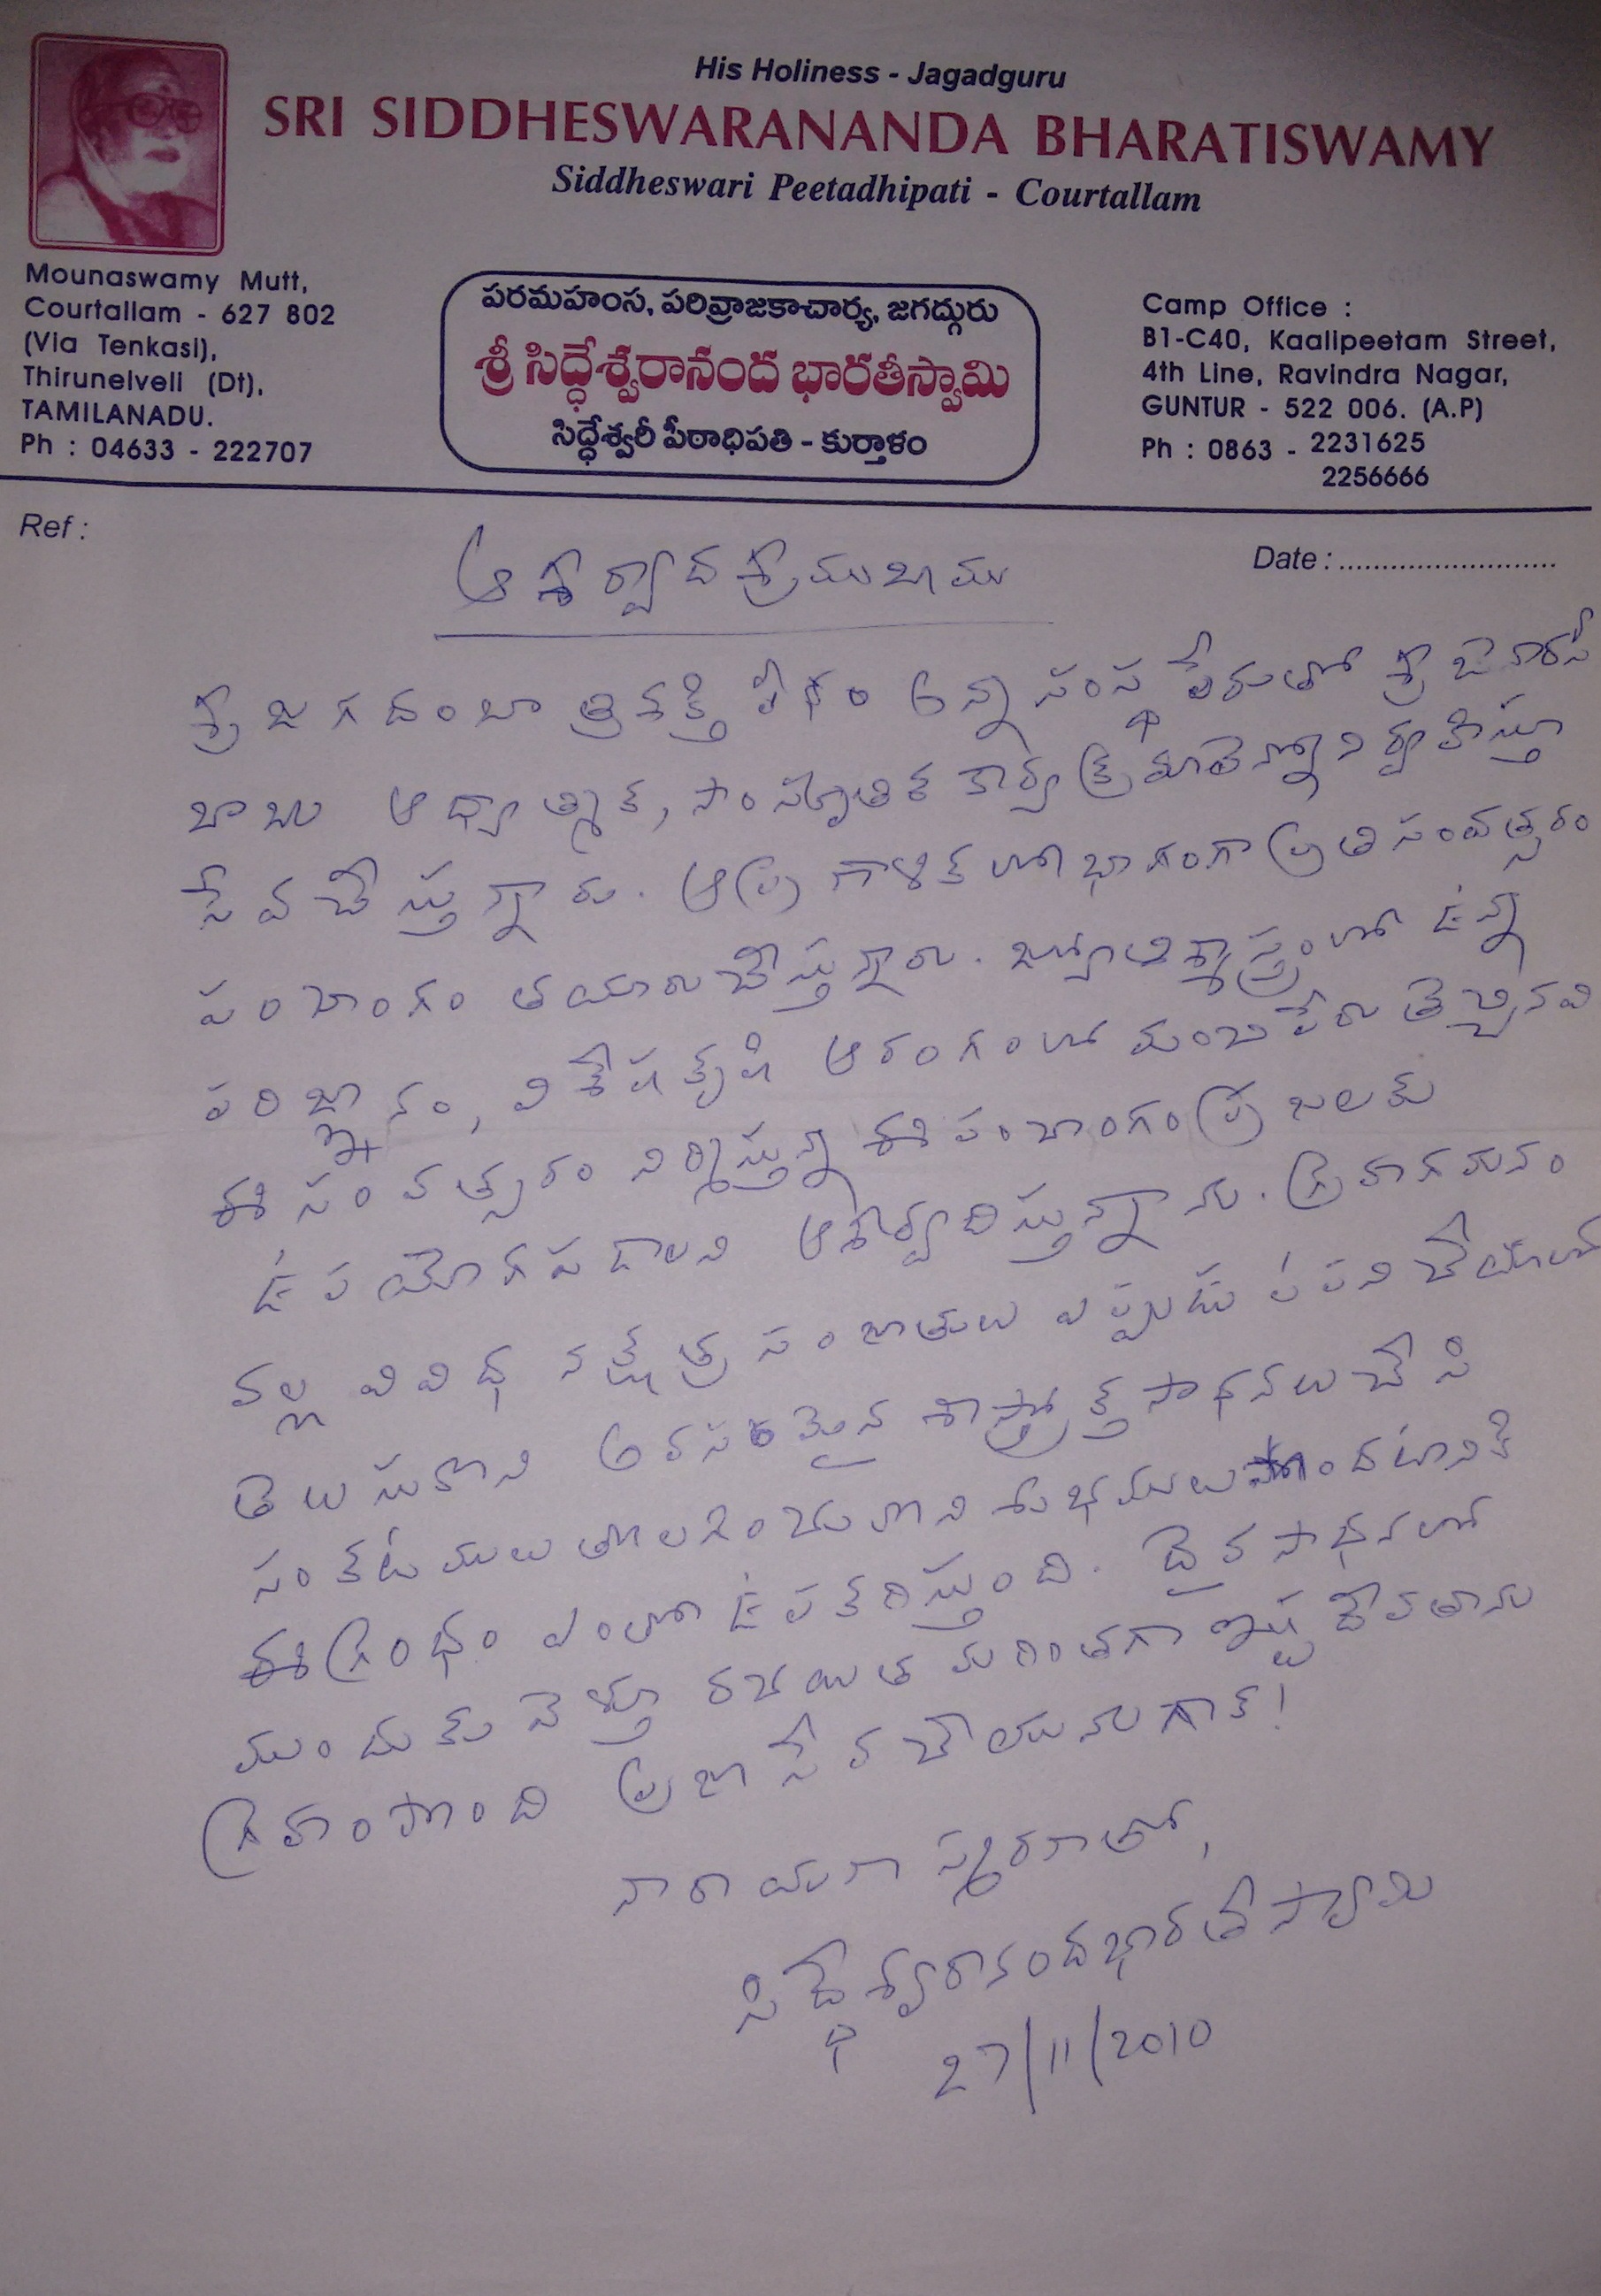 His Holiness - Jagadguru
SRI SIDDHESWARANANDA BHARATISWAMY
Siddheswari Peetadhipati - Courtallam
Mounaswamy Mutt,
Courtallam - 627 802
(Via Tenkasi),
Thirunelveli (Dt),
TAMILANADU.
Ph : 04633 - 222707
పరమహంస, పరివ్రాజకాచార్య, జగద్గురు
శ్రీ సిద్ధేశ్వరానంద భారతీస్వామి
సిద్ధేశ్వరీ పీఠాధిపతి - కుర్తాళం
Camp Office :
B1-C40, Kaalipeetam Street,
4th Line, Ravindra Nagar,
GUNTUR - 522 006. (A.P)
Ph : 0863 - 2231625
2256666
Ref :
Date : .........................
ఆశీర్వాద శ్రీముఖము
శ్రీ జగదంబా త్రిశక్తి పీఠం అన్న సంస్థ పేరుతో శ్రీ
బాబు ఆధ్యాత్మిక, సాంస్కృతిక కార్యక్రమాలెన్నో నిర్వహిస్తూ
సేవ చేస్తున్నారు. ఆ ప్రణాళికలో భాగంగా ప్రతి సంవత్సరం
పంచాంగం తయారు చేస్తున్నారు. జ్యోతిశ్శాస్త్రంలో ఉన్న
పరిజ్ఞానం, విశేషకృషి ఆ రంగంలో మంచి పేరు తెచ్చినవి
ఈ సంవత్సరం నిర్మిస్తున్న ఈ పంచాంగం ప్రజలకు
ఉపయోగపడాలని ఆశీర్వదిస్తున్నాను. గ్రహగమనం
వల్ల వివిధ నక్షత్ర సంజాతులు ఎప్పుడు ఏ పని చేయాలో
తెలుసుకొని అవసరమైన శాస్త్రోక్త సాధనలు చేసి
సంకటములు తొలగించుకొని శుభములు పొందటానికి
ఈ గ్రంథం ఎంతో ఉపకరిస్తుంది. దైవ సాధనలో
ముందుకు వెళ్తూ రచయిత మరింతగా ఇష్ట దేవతాను
గ్రహం పొంది ప్రజాసేవ చేయునుగాక!
నారాయణ స్మరణతో,
సిద్ధేశ్వరానందభారతీస్వామి
27/11/2010